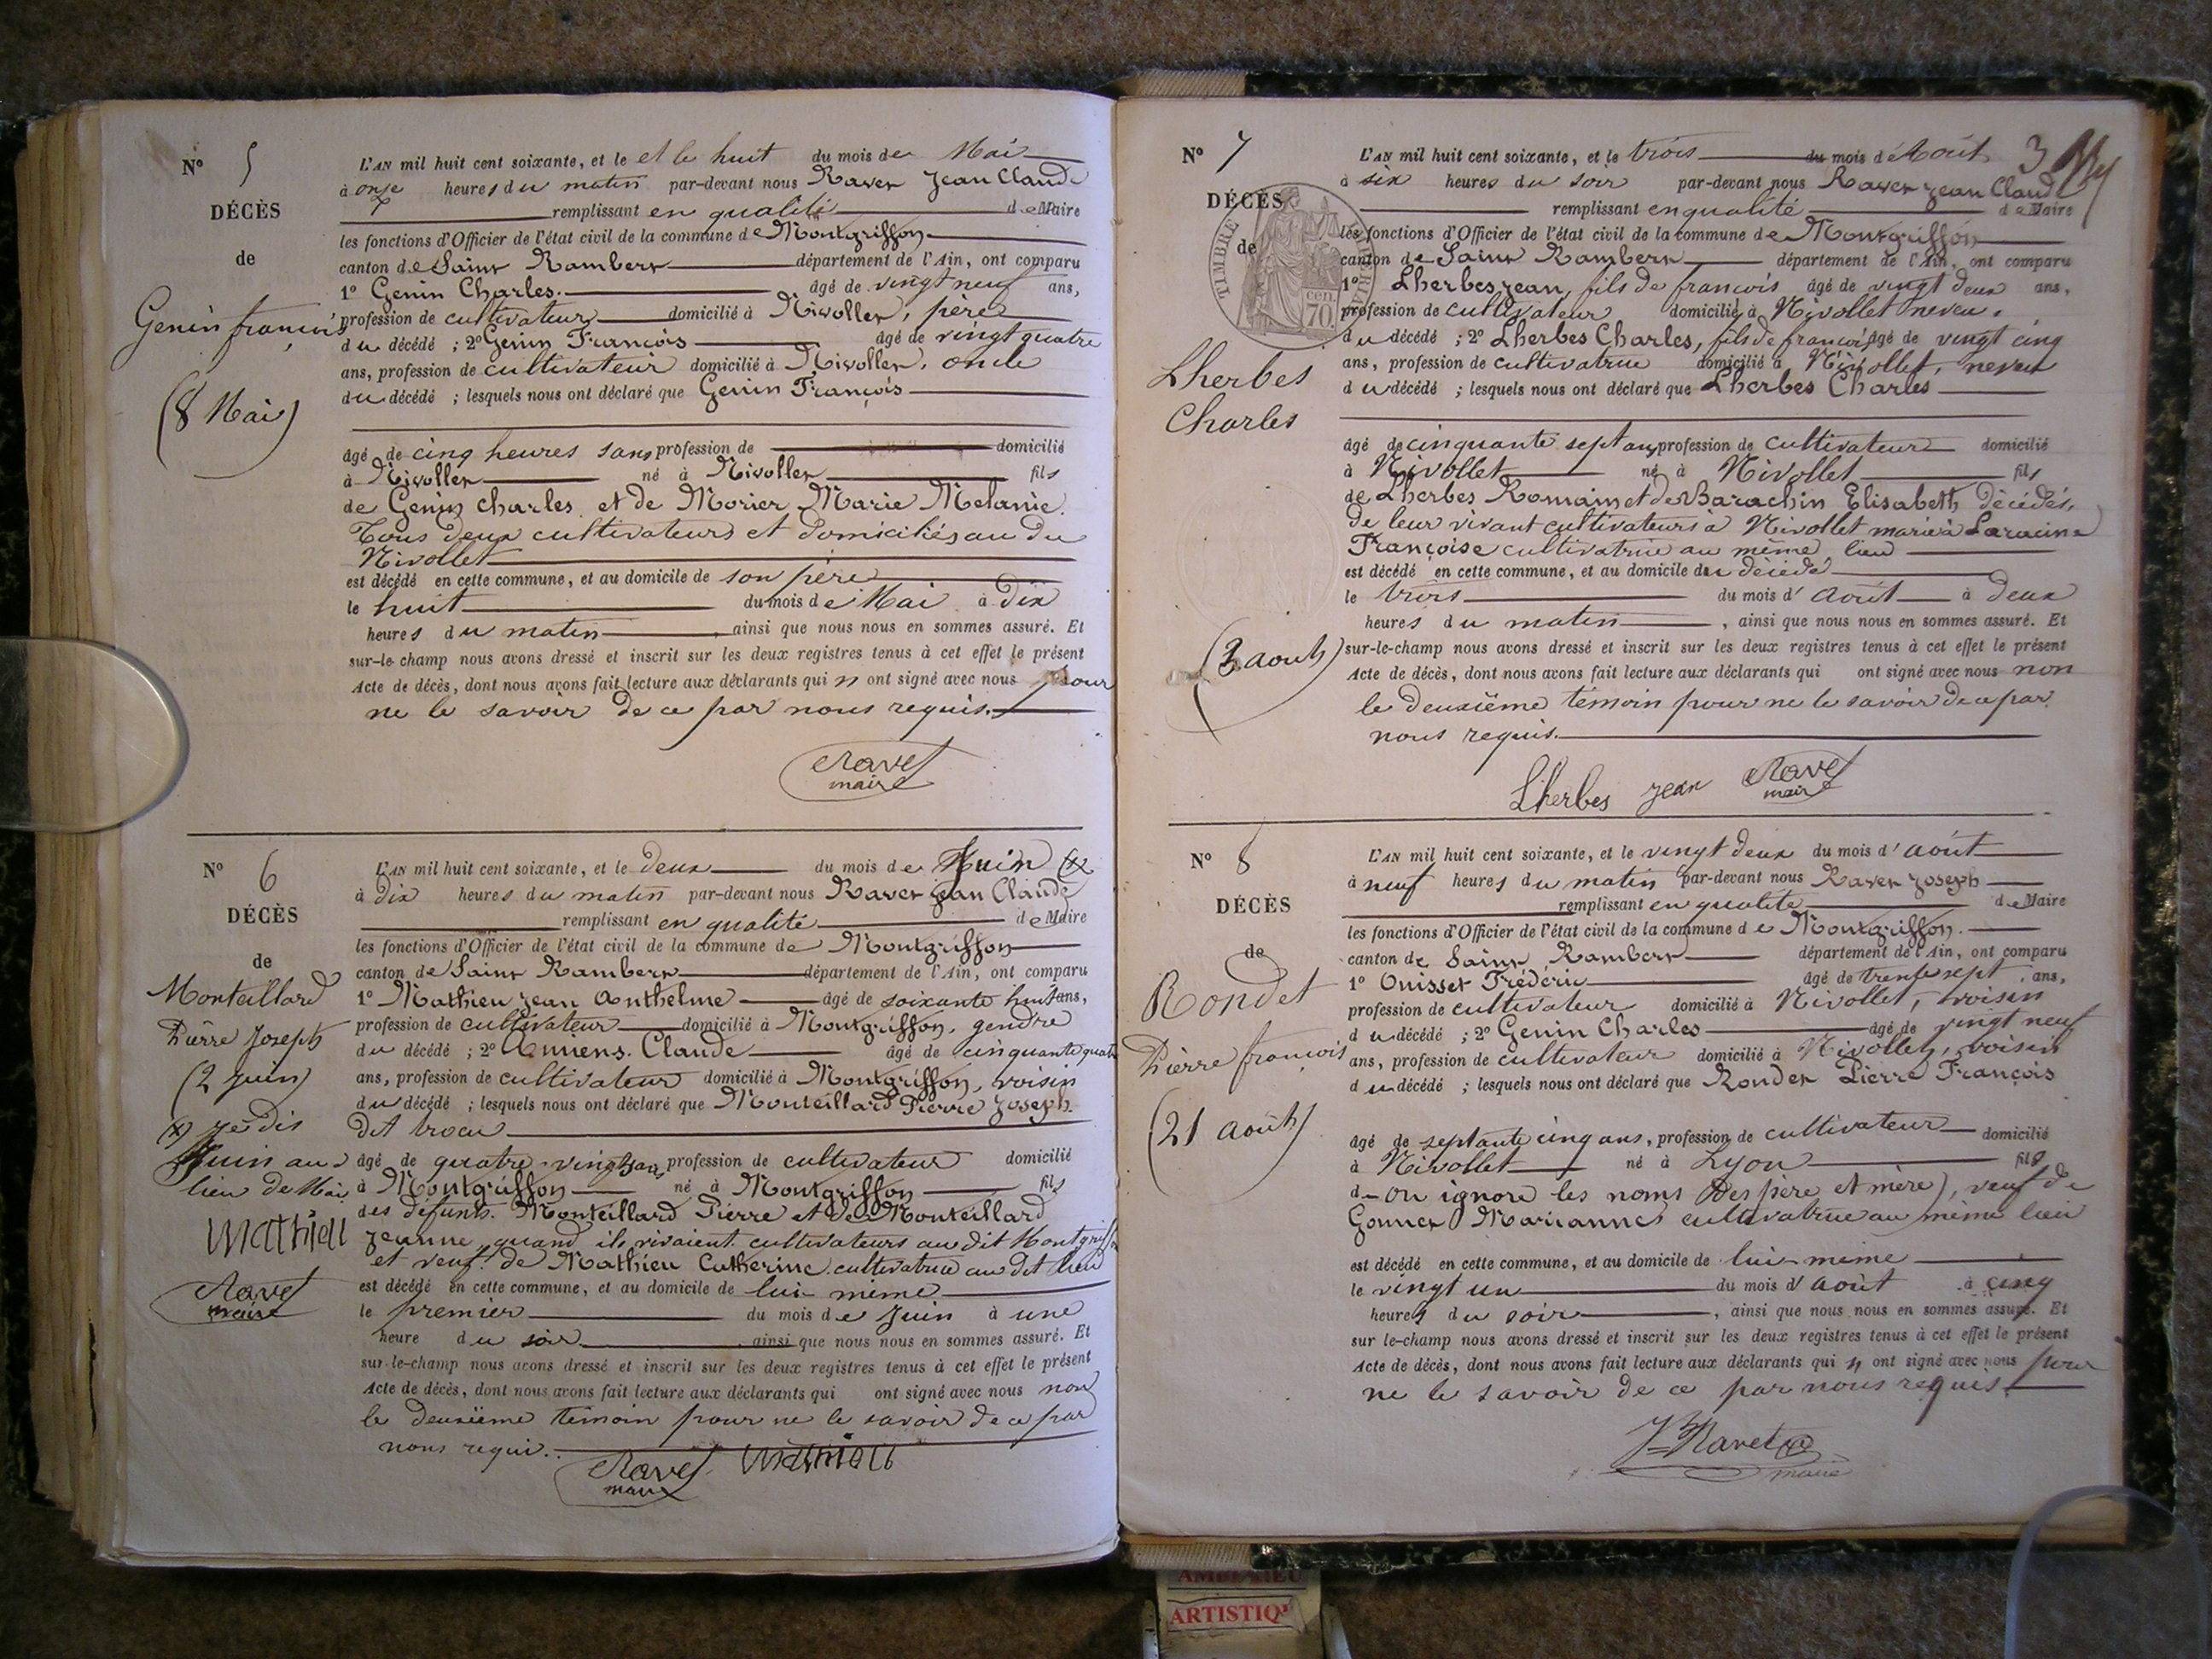 N° 5
DÉCÈS
de
Genin françois
(8 Mai)
L'AN mil huit cent soixante, et le et le huit du mois de Mai
à onze heures du matin par-devant nous Ravet Jean Claude
remplissant en qualité de Maire
les fonctions d'Officier de l'état civil de la commune de Montgriffon
canton de Saint Rambert département de l'Ain, ont comparu
1° Genin Charles. âgé de vingt neuf ans,
profession de cultivateur domicilié à Nivollet, père
du décédé ; 2° Genin François âgé de vingt quatre
ans, profession de cultivateur domicilié à Nivollet, oncle
du décédé ; lesquels nous ont déclaré que Genin François
âgé de cinq heures sans profession de domicilié
à Nivollet né à Nivollet fils
de Genin Charles et de Morier Marie Melanie.
Tous deux cultivateurs et domiciliés au du
Nivollet
est décédé en cette commune, et au domicile de son père
le huit du mois de Mai à dix
heures du matin, ainsi que nous nous en sommes assuré. Et
sur-le-champ nous avons dressé et inscrit sur les deux registres tenus à cet effet le présent
Acte de décès, dont nous avons fait lecture aux déclarants qui n ont signé avec nous pour
ne le savoir de ce par nous requis.
Ravet
maire
N° 6
DÉCÈS
de
Monteillard
Pierre Joseph
(2 juin)
(x) je dis
Juin au
lieu de Mai
Mathieu
Ravet
maire
L'AN mil huit cent soixante, et le deux du mois de Juin (x)
à dix heures du matin par-devant nous Ravet Jean Claude
remplissant en qualité de Maire
les fonctions d'Officier de l'état civil de la commune de Montgriffon
canton de Saint Rambert département de l'Ain, ont comparu
1° Mathieu Jean Anthelme âgé de soixante huit ans,
profession de cultivateur domicilié à Montgriffon, gendre
du décédé ; 2° Anniens. Claude âgé de cinquante quatre
ans, profession de cultivateur domicilié à Montgriffon, voisin
du décédé ; lesquels nous ont déclaré que Monteillard Pierre Joseph.
dit
âgé de quatre-vingts ans profession de cultivateur domicilié
à Montgriffon né à Montgriffon fils
des défunts. Monteillard Pierre et de Monteillard
Jeanne, quand ils vivaient cultivateurs au dit Montgriffon
et veuf de Mathieu Catherine cultivatrice au dit lieu
est décédé en cette commune, et au domicile de lui-même
le premier du mois de Juin à une
heure du soir ainsi que nous nous en sommes assuré. Et
sur-le-champ nous avons dressé et inscrit sur les deux registres tenus à cet effet le présent
Acte de décès, dont nous avons fait lecture aux déclarants qui ont signé avec nous non
le deuxième témoin pour ne le savoir de ce par
nous requi.
Ravet Mathieu
maire
N° 7
3
DÉCÈS
de
TIMBRE
70 cen
Lherbes
Charles
(3 aout)
L'AN mil huit cent soixante, et le trois du mois d'Août
à six heures du soir par-devant nous Ravet Jean Claude
remplissant en qualité de Maire
les fonctions d'Officier de l'état civil de la commune de Montgriffon
canton de Saint Rambert département de l'Ain, ont comparu
1° Lherbes jean, fils de françois âgé de vingt deux ans,
profession de cultivateur domicilié à Nivollet neveu.
du décédé ; 2° Lherbes Charles, fils de françois, âgé de vingt cinq
ans, profession de cultivatrue domicilié à Nivollet, neveu
du décédé ; lesquels nous ont déclaré que Lherbes Charles
âgé de cinquante sept ans, profession de cultivateur domicilié
à Nivollet né à Nivollet fils
de Lherbes Romain et de Barachin Elisabeth décédés,
de leur vivant cultivateurs à Nivollet marié à Laracine
Françoise cultivatrice au même lieu
est décédé en cette commune, et au domicile du décédé
le trois du mois d'août à deux
heures du matin, ainsi que nous nous en sommes assuré. Et
sur-le-champ nous avons dressé et inscrit sur les deux registres tenus à cet effet le présent
Acte de décès, dont nous avons fait lecture aux déclarants qui ont signé avec nous non
le deuxième témoin pour ne le savoir de ce par
nous requis.
Lherbes jean Ravet
maire
N° 8
DÉCÈS
de
Rondet
Pierre françois
(21 août)
L'AN mil huit cent soixante, et le vingt deux du mois d'août
à neuf heures du matin par-devant nous Ravet Joseph
remplissant en qualité de Maire
les fonctions d'Officier de l'état civil de la commune de Montgriffon.
canton de Saint Rambert département de l'Ain, ont comparu
1° Ouisset Frédéric âgé de trente sept ans,
profession de cultivateur domicilié à Nivollet, voisin
du décédé ; 2° Genin Charles âgé de vingt neuf
ans, profession de cultivateur domicilié à Nivollet, voisin
du décédé ; lesquels nous ont déclaré que Rondet Pierre François
âgé de septante cinq ans, profession de cultivateur domicilié
à Nivollet né à Lyon fils
d- on ignore les noms des père et mère), veuf de
Gonnet Marianne cultivatrice au même lieu
est décédé en cette commune, et au domicile de lui-même
le vingt un du mois d'août à cinq
heures du soir, ainsi que nous nous en sommes assuré. Et
sur le-champ nous avons dressé et inscrit sur les deux registres tenus à cet effet le présent
Acte de décès, dont nous avons fait lecture aux déclarants qui n ont signé avec nous pour
ne le savoir de ce par nous requis.
J=Ravet
maire
ARTISTIQ